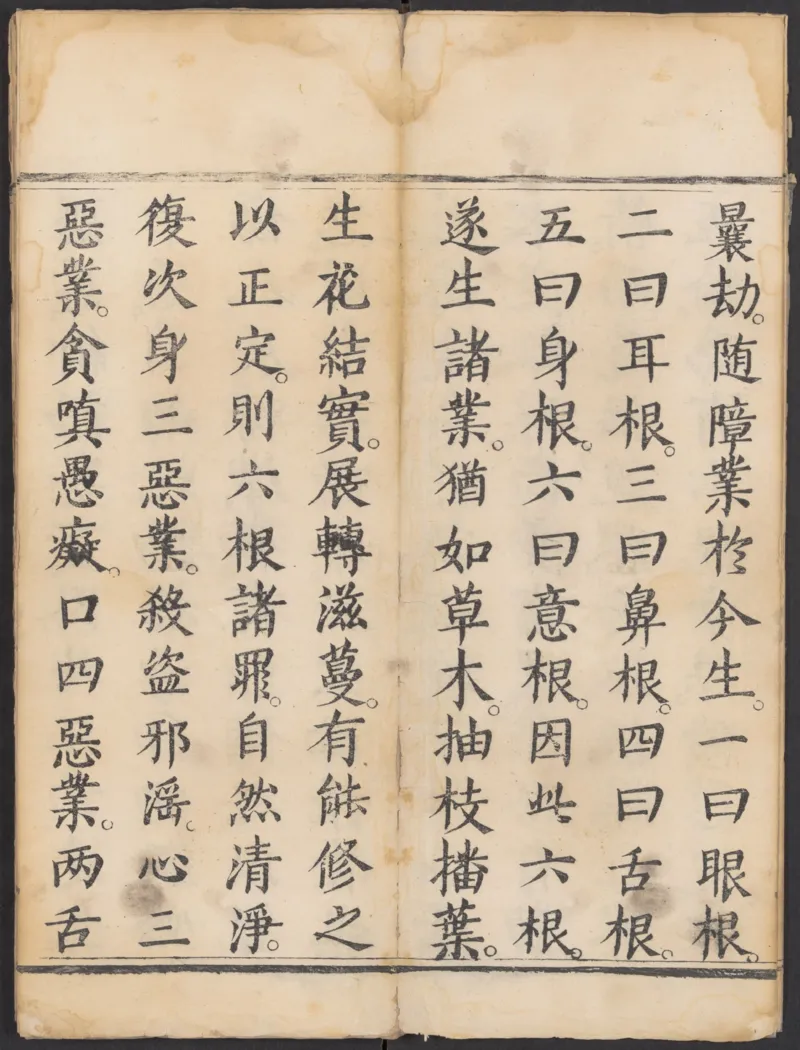 曩劫。随障業於今生。一曰眼根。
二曰耳根。三曰鼻根。四曰舌根。
五曰身根。六曰意根。因此六根。
遂生諸業。猶如草木。抽枝播葉。
生花結實。展轉滋蔓。有能修之
以正定。則六根諸罪。自然清淨。
復次身三惡業。殺盗邪滛。心三
惡業。貪嗔愚癡。口四惡業。两舌